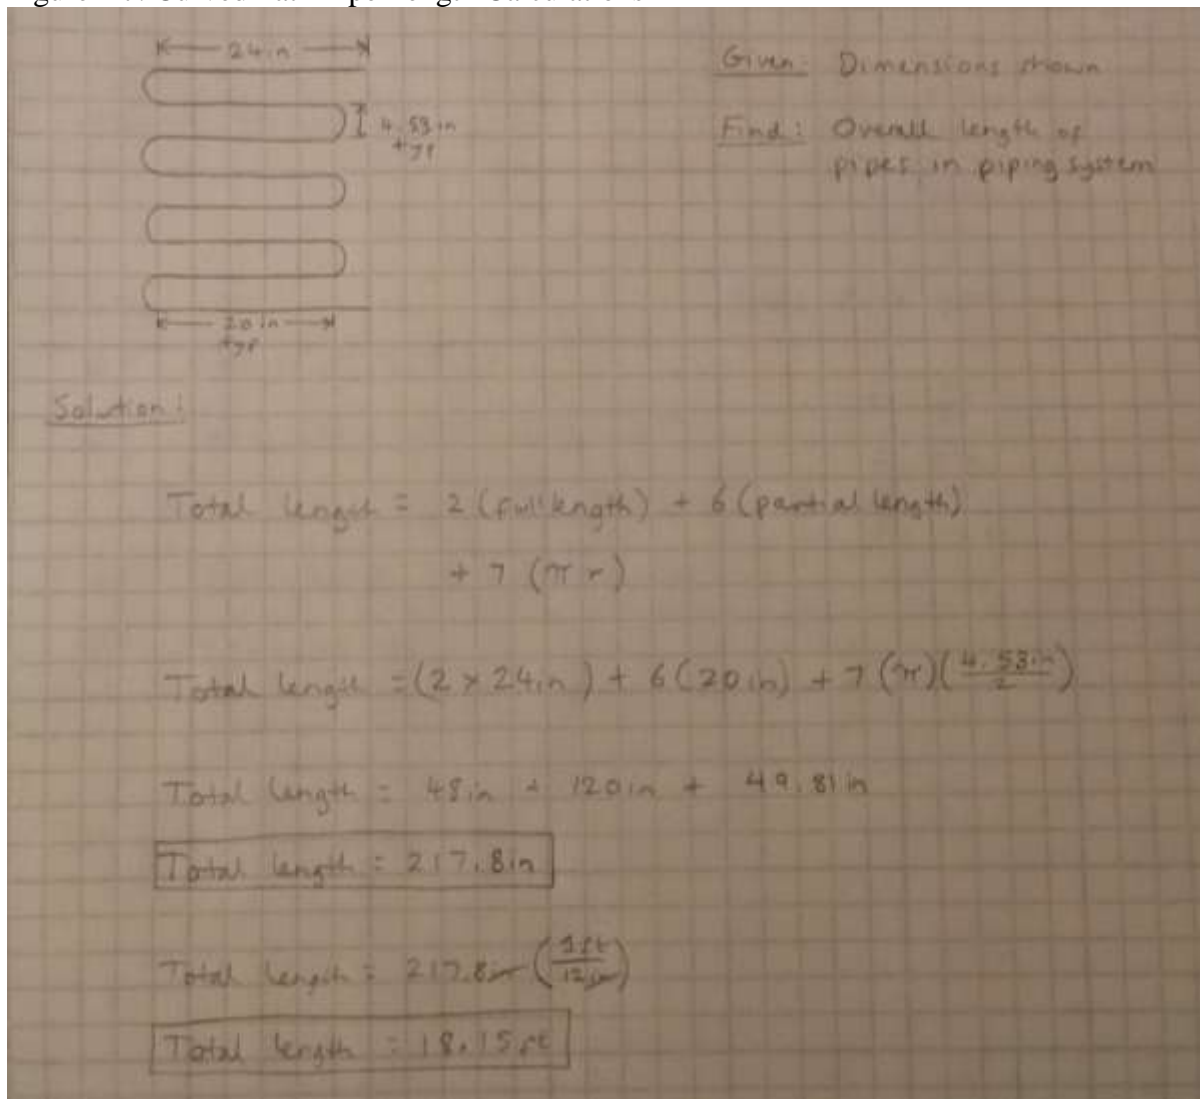 24in
4.53in
typ
20in
typ
Given: Dimensions shown
Find: Overall length of
pipes in piping system
Solution:
Total length = 2 (full length) + 6 (partial length)
+ 7 (πr)
Total length = (2 × 24in) + 6(20in) + 7(π)(4.53in/2)
Total length = 48in + 120in + 49.81in
Total length = 217.8in
Total length = 217.8in (1ft/12in)
Total length = 18.15ft